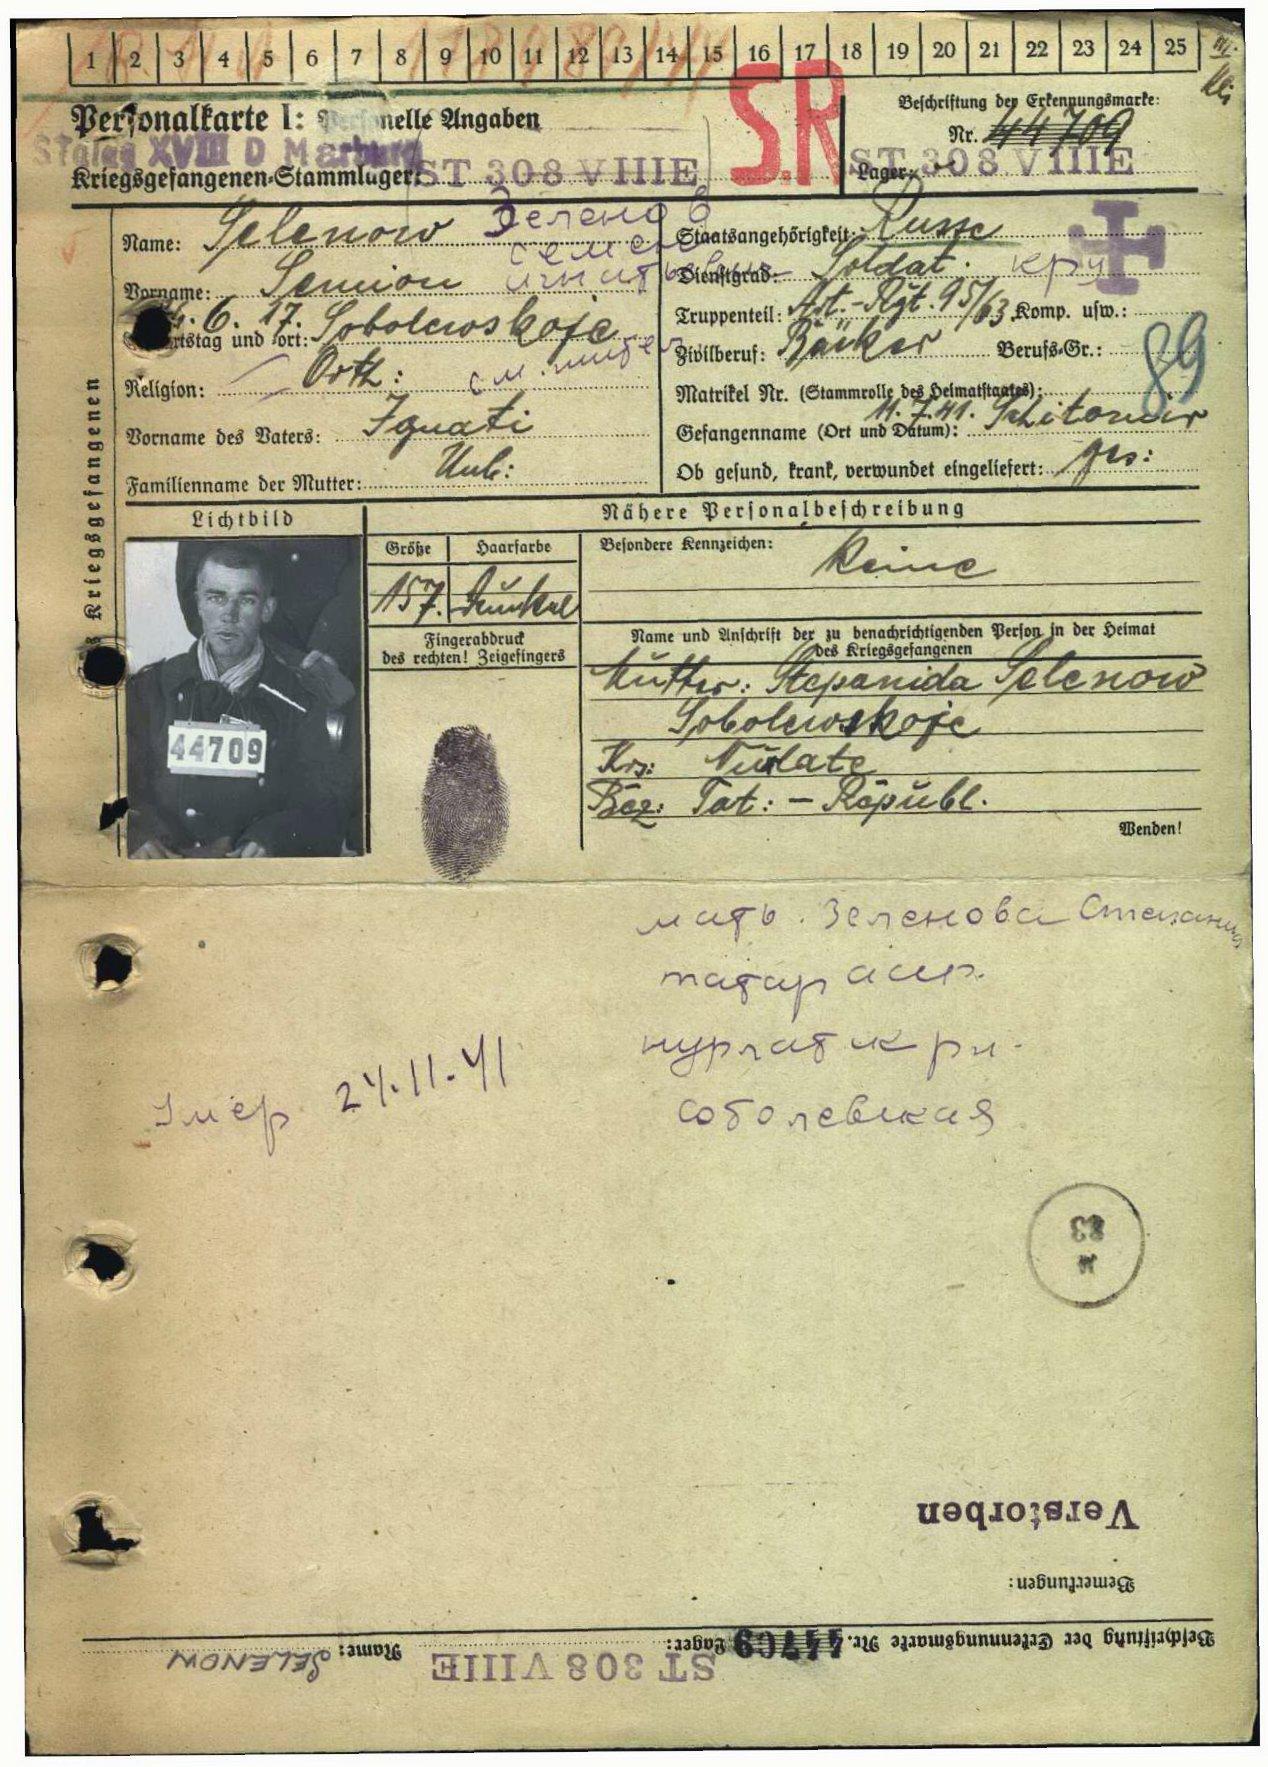 1 2 3 4 5 6 7 8 9 10 11 12 13 14 15 16 17 18 19 20 21 22 23 24 25
Personalkarte I: Personelle Angaben
Stalag XVIII D Marburg
Kriegsgefangenen-Stammlager: ST 308 VIIIE
S.R
Beschriftung der Erkennungsmarke:
Nr. 44709
Lager: ST 308 VIIIE
Name: Selenow Зеленов
семен
Vorname: Semion
6. 17. Sobolewskoje
Geburtstag und -ort:
Religion: Orth:
Vorname des Vaters: Ignati
Familienname der Mutter: Unb:
Staatsangehörigkeit: Russe
Dienstgrad: Soldat.
Truppenteil: Art.-Rgt. 95/63 Komp. usw.:
Zivilberuf: Bäcker Berufs-Gr.: 89
Matrikel Nr. (Stammrolle des Heimatstaates):
Gefangenname (Ort und Datum): 11.7.41. Schitomir
Ob gesund, krank, verwundet eingeliefert: ges:
des Kriegsgefangenen
Lichtbild
44709
Nähere Personalbeschreibung
Größe Haarfarbe Besondere Kennzeichen:
157. dunkel Keine
Fingerabdruck
des rechten! Zeigefingers
Name und Anschrift der zu benachrichtigenden Person in der Heimat
des Kriegsgefangenen
Mutter: Stepanida Selenow
Sobolewskoje
Krs: Nurlate
Bez: Tat: - Republ.
Wenden!
мать. Зеленова Степанида
татар асср.
нурлатик рн.
соболевская
Умер 24.11.41
83
Verstorben
Bemerkungen:
Beschriftung der Erkennungsmarke Nr. 44709 Lager: ST 308 VIIIE Name: SELENOW